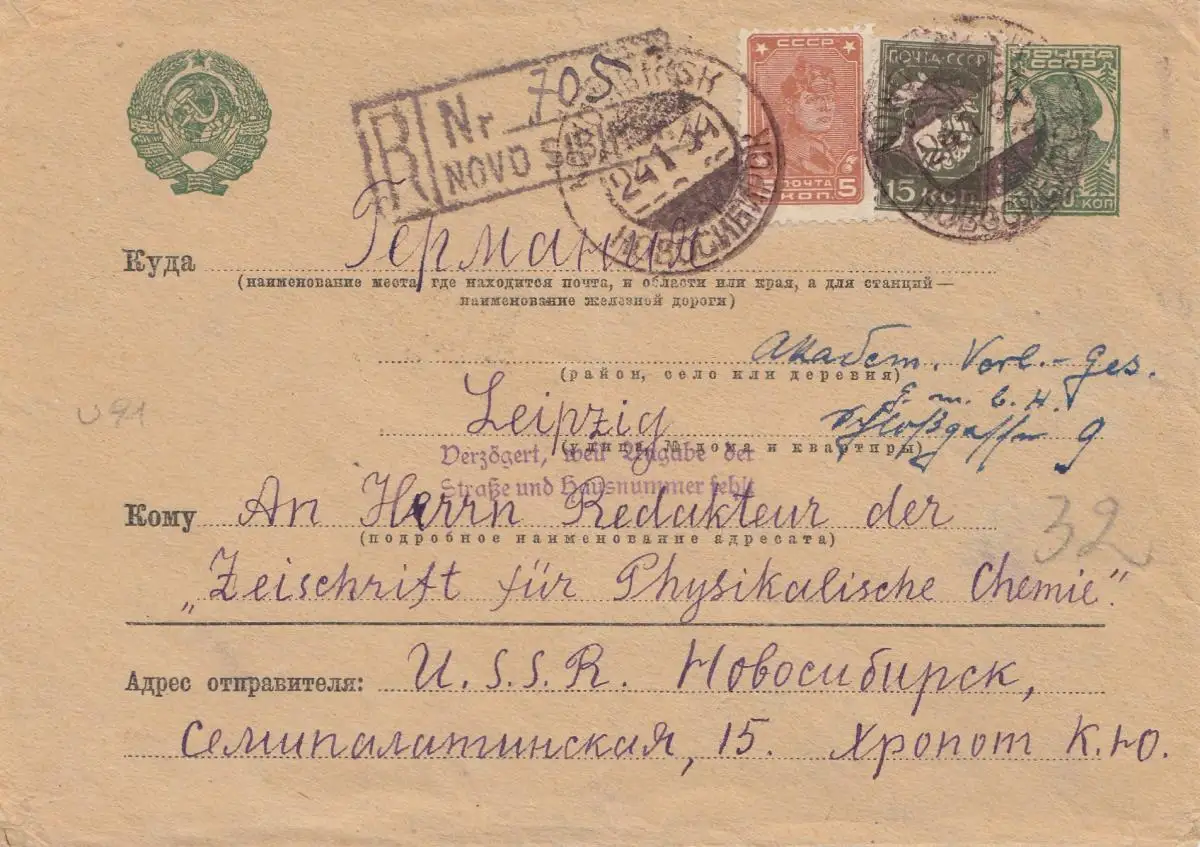 R Nr 705
NOVO SIBIRSK
НОВОСИБИРСК
24 1
СССР
ПОЧТА
5 КОП.
ПОЧТА СССР
15 КОП
ПОЧТА
СССР
КОП
НОВОСИБИРСК
Куда Германия
(наименование места, где находится почта, и области или края, а для станций—
наименование железной дороги)
Академ. Verl.- Ges.
(район, село или деревня)
G. m. b. H.
Leipzig Schloßgasse 9
(улица, № дома и квартиры)
Verzögert, weil Angabe der
Straße und Hausnummer fehlt
u 91
Кому An Herrn Redakteur der
(подробное наименование адресата)
32
„Zeischrift für Physikalische Chemie".
Адрес отправителя: U.S.S.R. Новосибирск,
Семипалатинская, 15. Хропот К.Ю.